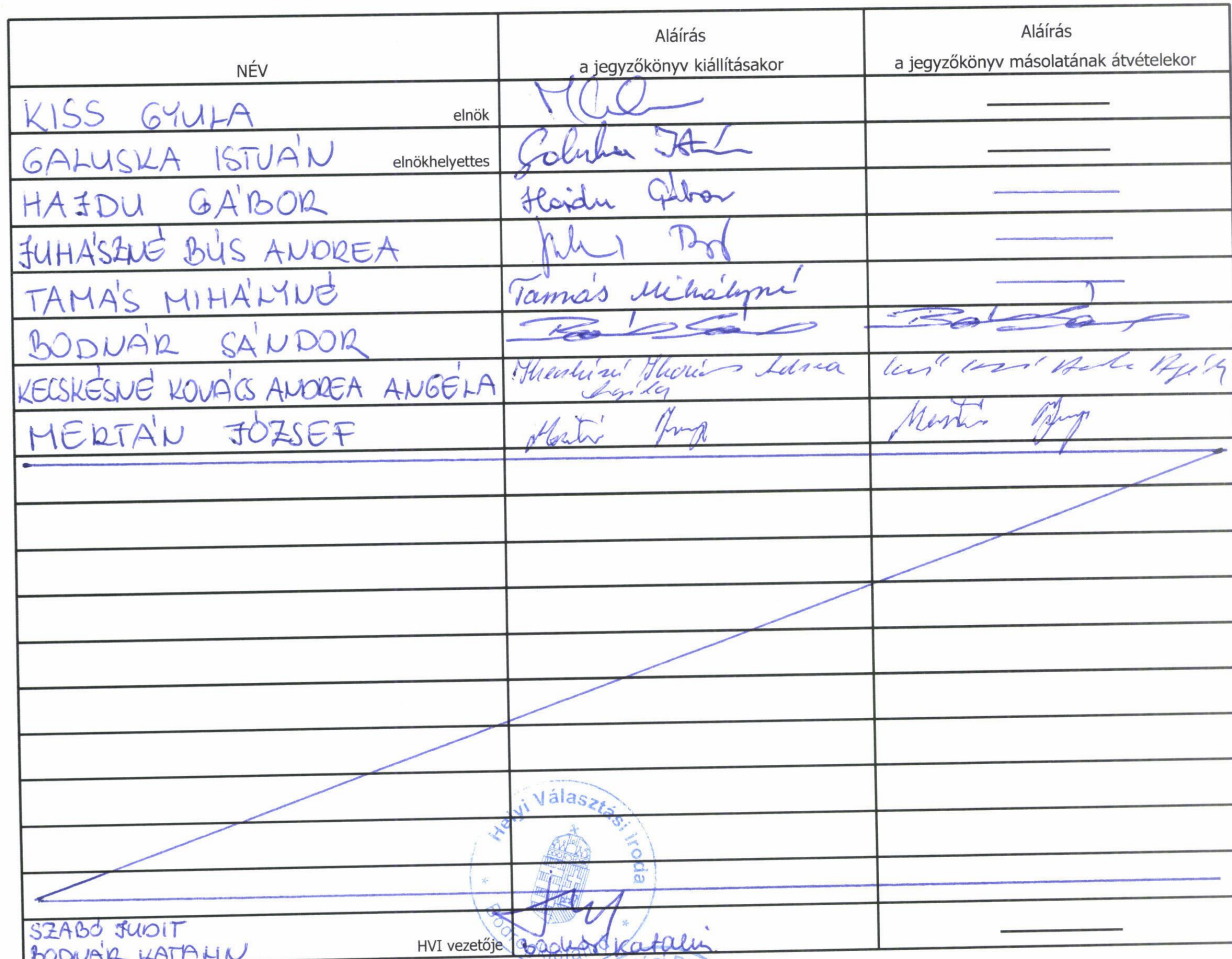 NÉV
Aláírás
a jegyzőkönyv kiállításakor
Aláírás
a jegyzőkönyv másolatának átvételekor
KISS GYULA elnök
GALUSKA ISTVÁN elnökhelyettes
HAJDU GÁBOR Hajdu Gábor
JUHÁSZNÉ BÚS ANDREA
TAMÁS MIHÁLYNÉ Tamás Mihályné
BODNÁR SÁNDOR
KECSKÉSNÉ KOVÁCS ANDREA ANGÉLA
MERTÁN JÓZSEF
Helyi Választási Iroda
SZABÓ JUDIT
BODNÁR KATALIN HVI vezetője Bodnár Katalin